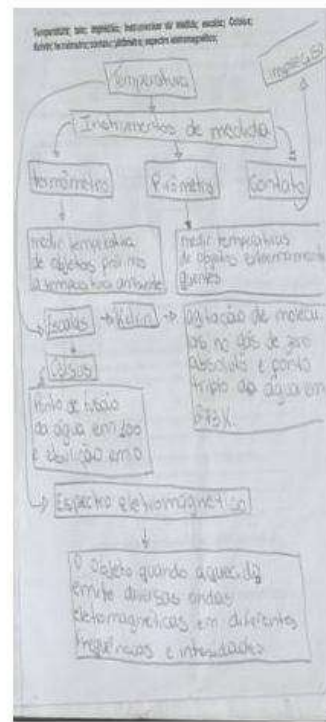 Temperatura; tato; impreciso; Instrumentos de medida; escalas; Celsius;
Kelvin; termômetro; contato; pirômetro; espectro eletromagnético;
Temperatura
impreciso
Instrumentos de medida
termômetro
Pirômetro
Contato
medir temperatura
de objetos próximo
a temperatura
medir temperaturas
de objetos extremamente
quentes
Escalas
Kelvin
agitação de molécu
as no gás de zero
absoluto e ponto
triplo da água em
273 K.
Celsius
Ponto de fusão
da água em 100
e ebulição em 0
Espectro eletromagnético
O objeto quando aquecido
emite diversas ondas
eletromagnéticas em diferentes
frequências e intensidades